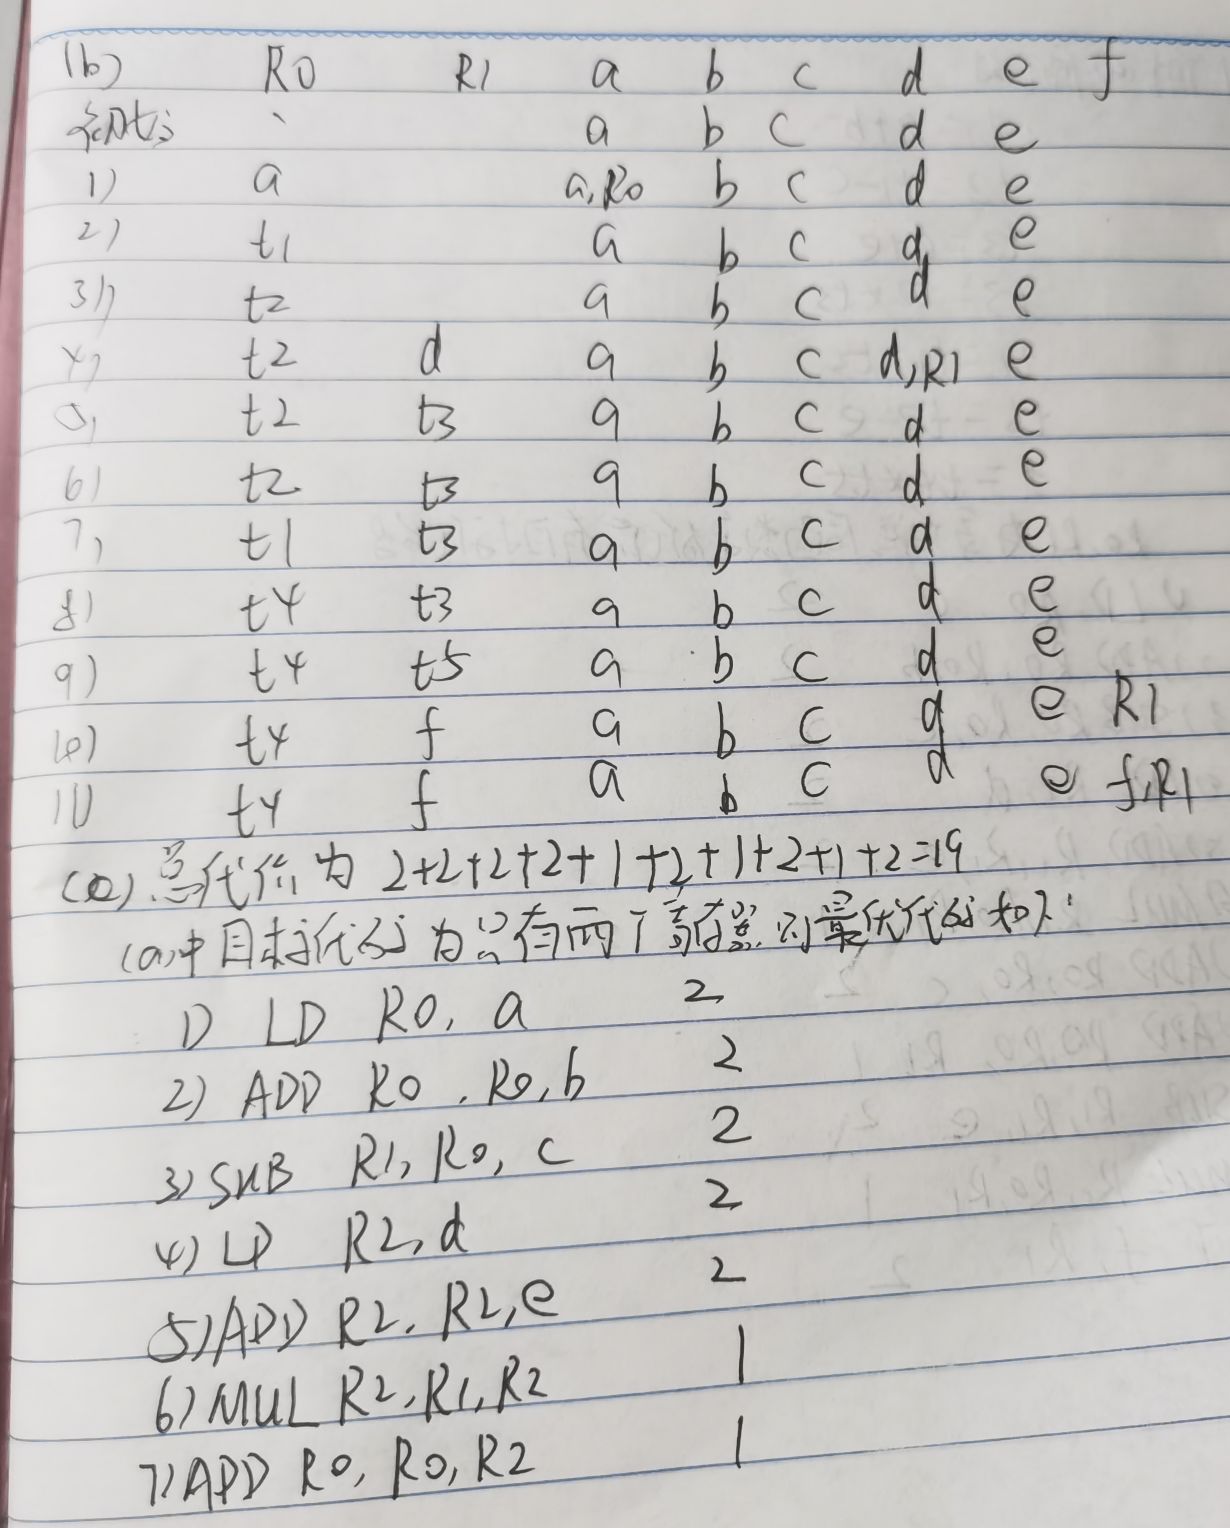 (b) R0 R1 a b c d e f
初始 a b c d e
1) a a,R0 b c d e
2) t1 a b c d e
3) t2 a b c d e
4) t2 d a b c d,R1 e
5) t2 t3 a b c d e
6) t2 t3 a b c d e
7) t1 t3 a b c d e
8) t4 t3 a b c d e
9) t4 t5 a b c d e
10) t4 f a b c d e R1
11) t4 f a b c d e f,R1
(c) 总代价为 2+2+2+2+1+2+1+2+1+2=19
(a)中目标代码为只有两个寄存器的最优代码如下:
1) LD R0, a 2
2) ADD R0, R0, b 2
3) SUB R1, R0, c 2
4) LD R2, d 2
5) ADD R2, R2, e 2
6) MUL R2, R1, R2 1
7) ADD R0, R0, R2 1